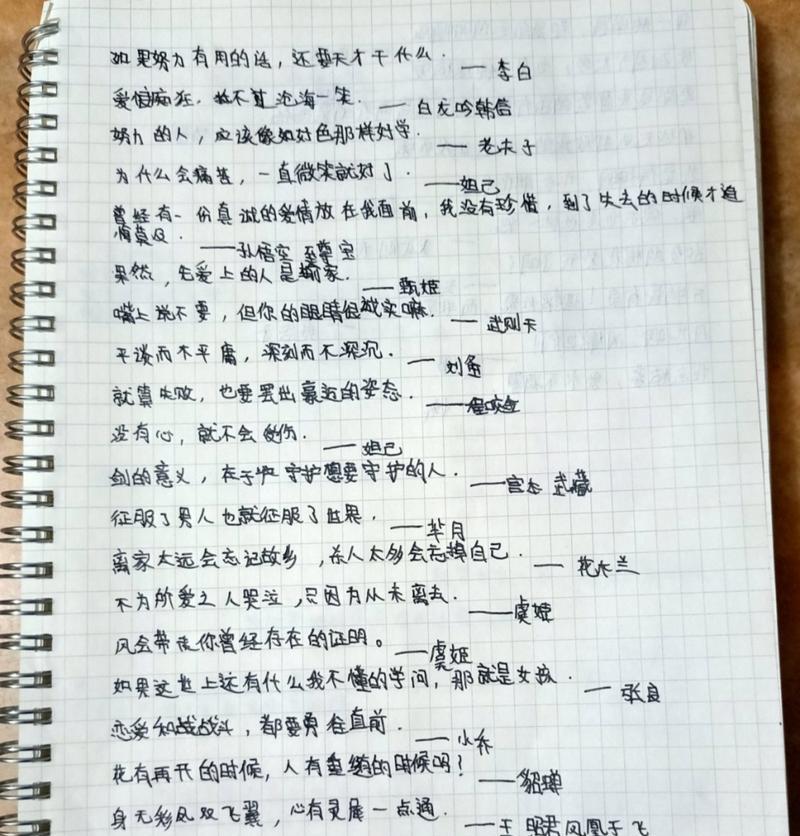 如果努力有用的话，还要天才干什么． —— 李白
爱恨痴狂，敌不过沧海一笑． —— 白龙吟韩信
努力的人，应该像好好色那样好学． —— 老夫子
为什么会痛苦，一直微笑就好了． —— 妲己
曾经有一份真诚的爱情放在我面前，我没有珍惜，到了失去的时候才追
悔莫及． —— 孙悟空 至尊宝
果然，先爱上的人是输家． —— 甄姬
嘴上说不要，但你的眼睛很诚实嘛． —— 武则天
平淡而不平庸，深刻而不深沉． —— 刘
就算失败，也要罢出豪迈的姿态． —— 程咬金
没有心，就不会受伤． —— 妲己
剑的意义，在于守护想要守护的人． —— 宫本 武藏
征服了男人也就征服了世界． —— 芈月
离家太远会忘记故乡，杀人太多会忘掉自己． —— 花木兰
不为所爱之人哭泣，只因为从未离去． —— 虞姬
风会带走你曾经存在的证明。 —— 虞姬
如果这世上还有什么我不懂的学问，那就是女孩． —— 张良
恋爱和战战斗，都要勇往直前． —— 小乔
花有再开的时候，人有重逢的时候吗？ —— 貂蝉
身无彩凤双飞翼，心有灵犀一点通． —— 王昭君凤凰于飞